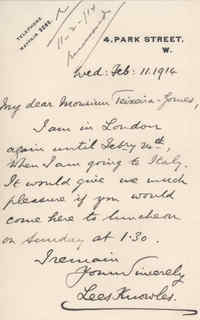 TELEPHONE
MAYFAIR
11-2-1914
4, PARK STREET,
W.
Wed: Feb: 11. 1914
My dear Monsieur Teixeira-Gomes,
I am in London
again until Febry 24th,
when I am going to Italy.
It would give us much
pleasure if you would
come here to luncheon
on Sunday at 1·30.
I remain
Yours Sincerely
Lees Knowles.